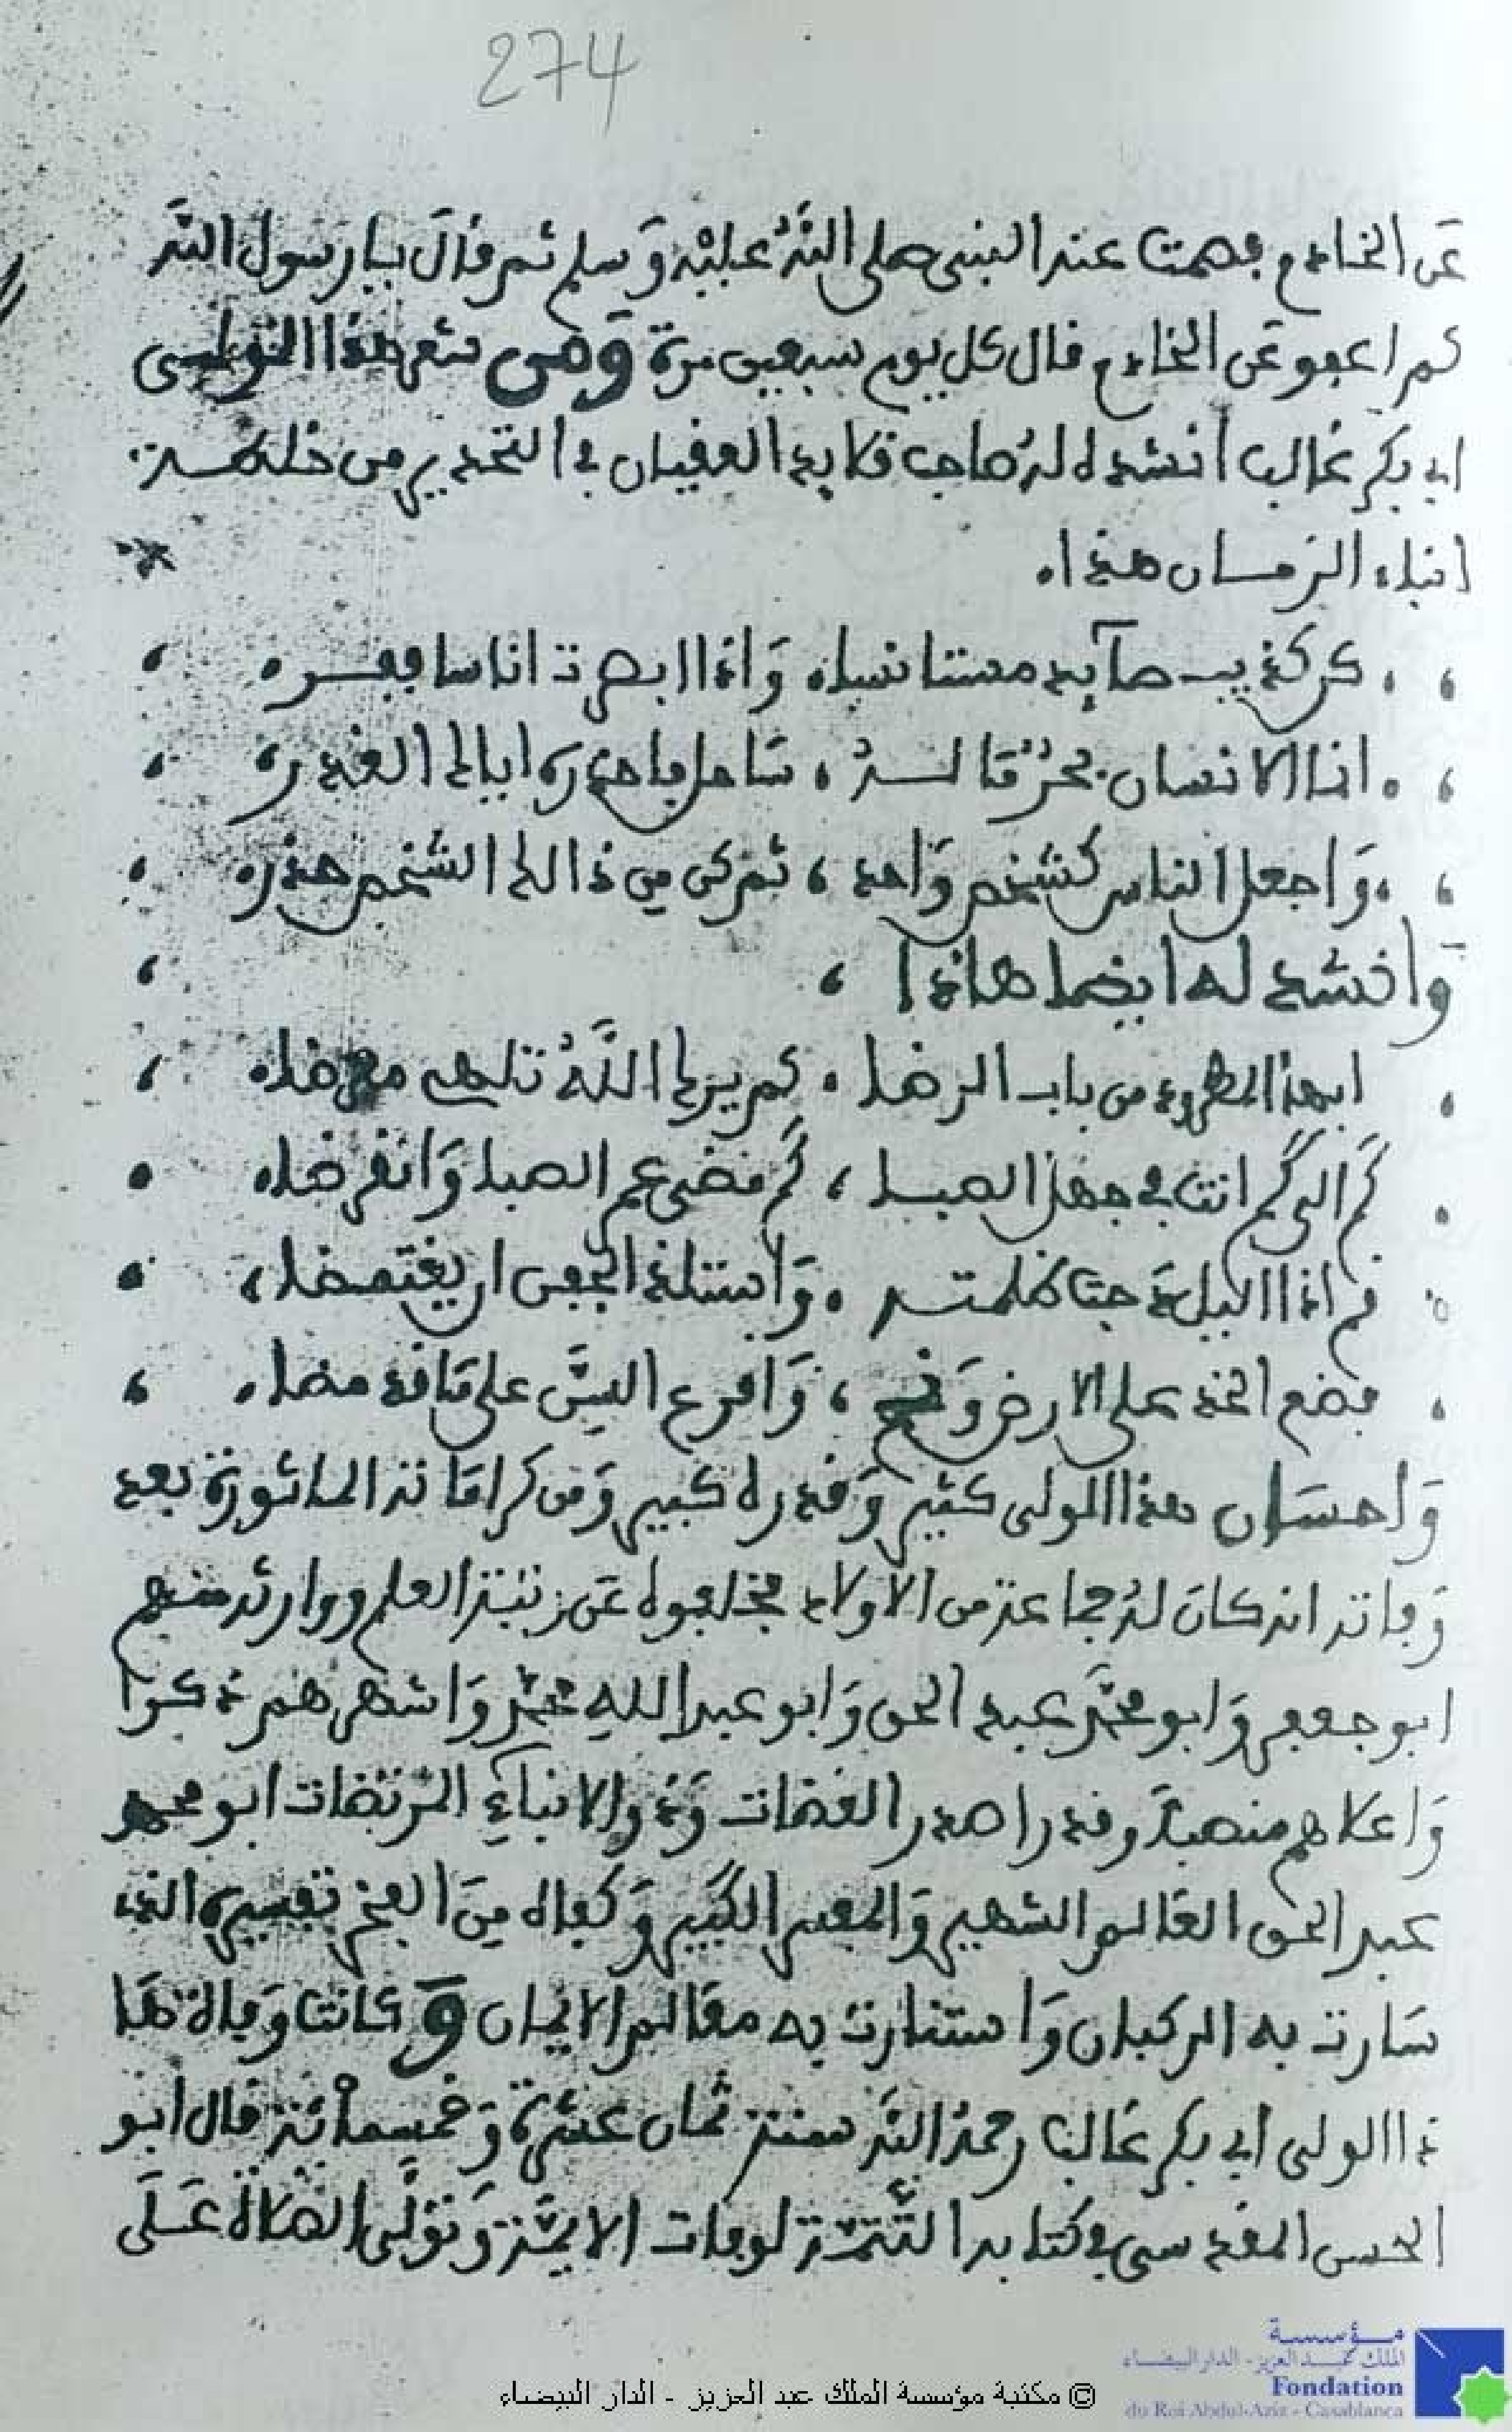 274
عَن الخادم فصمت عند النبى صلى اللهُ عليْه وَسلم ثم قالَ يا رسول اللهَ
كم اعفو عَن الخادم قال كل يوم سبعين مرة وَمن شعر هذا الولى
ابى بكر غالب أنشده لهُ صاحب قلايد العقيان فى التحذير من خلطــة
ابناء الزمــان هذا.
كن كذيب صآيد مستانسا وَاذا ابصرت انسانا ففــر
انما الانسان بحرٌ مَا لــهُ سَاحل فاحذره اياك الغرر
وَاجعل الناس كشخص وَاحد ثم كن من ذالك الشخص حذر
وَانشد له ايضا هاذا
ايهذا المطرود من باب الرضا كم يراك اللَّهُ تلهى معرضا
كَم الى كَم انت فى جهل الصبــا كَم مضى عمر الصبا وَانقرضا
قم اذا الليل دَجت ظلمتــه وَاستلذ الجفن ان يغتمضا
فضع الخد على الارض وَنح وَاقرع السنَّ على مَا قد مضا
وَاحسَان هذا المولى كثير وَقدره كبير وَمن كرامَاته الماثورة بعد
وَفاته انه كانَ لهُ جماعة من الأولاد فخلفوه عَن زينة العلم ووارثه منهم
ابو جعفر وَابو محمَّد عبد الحق وَابو عبد اللهِ محمَّد وَاشهرهم ذكرَا
وَاعلاهم منصبًا وقدرا صدر القضات وَذو الانباءِ المرتضات ابو محمد
عبد الحق العَالم الشهير وَالمفسر الكَبير وَكفاه مِنَ الفخر تفسيره الذى
سَارت به الركبان وَاستنارت به معَالم الايمان وَ كانت وَفاة هَا
ذا الولى ابى بكر غَالب رحمهُ اللهَ سنة ثمان عشرَة وَخمسمائة قال ابو
الحسن المقدسى فى كتابه التَّتمة لوفات الايمَّة وَتولَّى الصلاة عَلَى
مؤسسة
الملك عبد العزيز - الدار البيضاء
Fondation
du Roi Abdul-Aziz - Casablanca
© مكتبة مؤسسة الملك عبد العزيز - الدار البيضاء